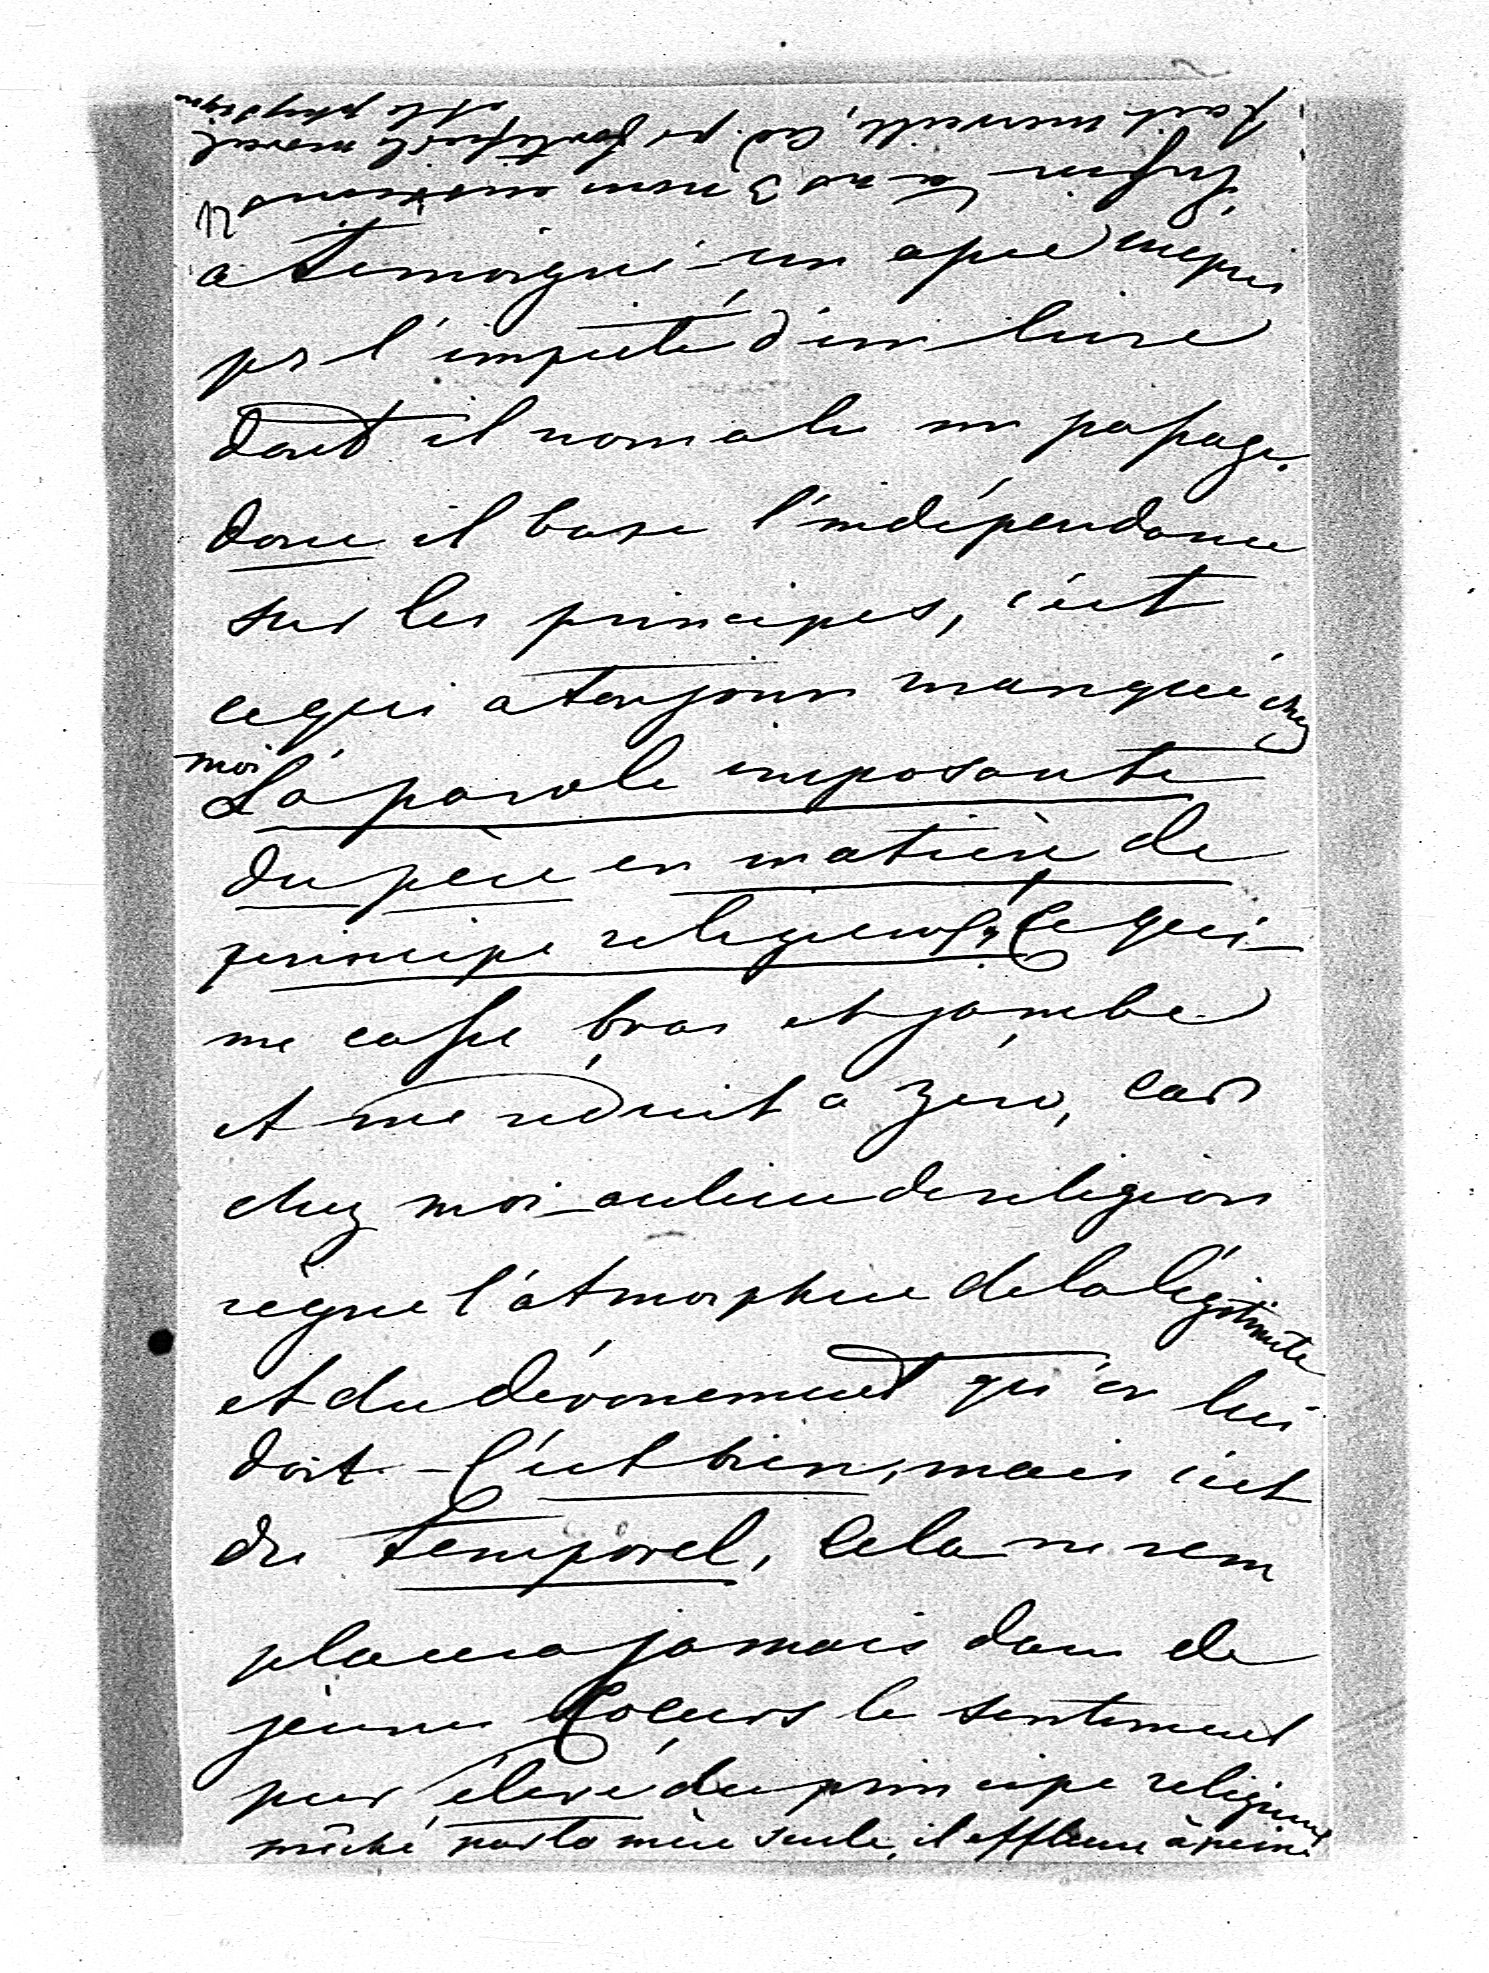 12
a témoigné un âpre mépris
pr l'impiété d'un livre
dont il nomale un passage.
donc il base l'indépendance
sur les principes, c'est
ce qui a toujours manqué chez
moi La parole imposante
du père en matière de
principe religieux, Ce qui
me casse bras et jambe
et me réduit a zéro, car
chez moi au lieu de religion
règne l'atmosphère de la légitimité
et du dévouement qu'on lui
doit - C'est bien, mais c'est
du temporel, Cela ne rem
placera jamais dans de
jeunes Coeurs le sentiment
pur élevé du principe religieux
prêché par la mère seule, il effleure à peine
fait merveille, pr fortifier le moral
et le physique